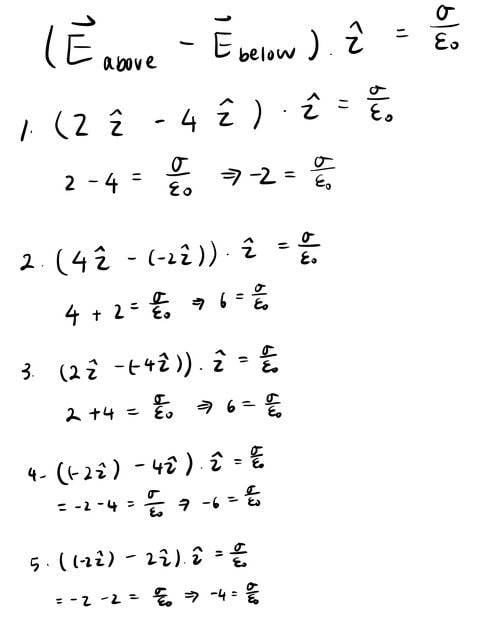 (E⃗ above - E⃗ below) · ẑ = σ/ε₀
1. (2 ẑ - 4 ẑ) · ẑ = σ/ε₀
2 - 4 = σ/ε₀ ⇒ -2 = σ/ε₀
2. (4ẑ - (-2ẑ)) · ẑ = σ/ε₀
4 + 2 = σ/ε₀ ⇒ 6 = σ/ε₀
3. (2ẑ - (-4ẑ)) · ẑ = σ/ε₀
2 + 4 = σ/ε₀ ⇒ 6 = σ/ε₀
4. ((-2ẑ) - 4ẑ) · ẑ = σ/ε₀
= -2 - 4 = σ/ε₀ ⇒ -6 = σ/ε₀
5. ((-2ẑ) - 2ẑ) · ẑ = σ/ε₀
= -2 - 2 = σ/ε₀ ⇒ -4 = σ/ε₀